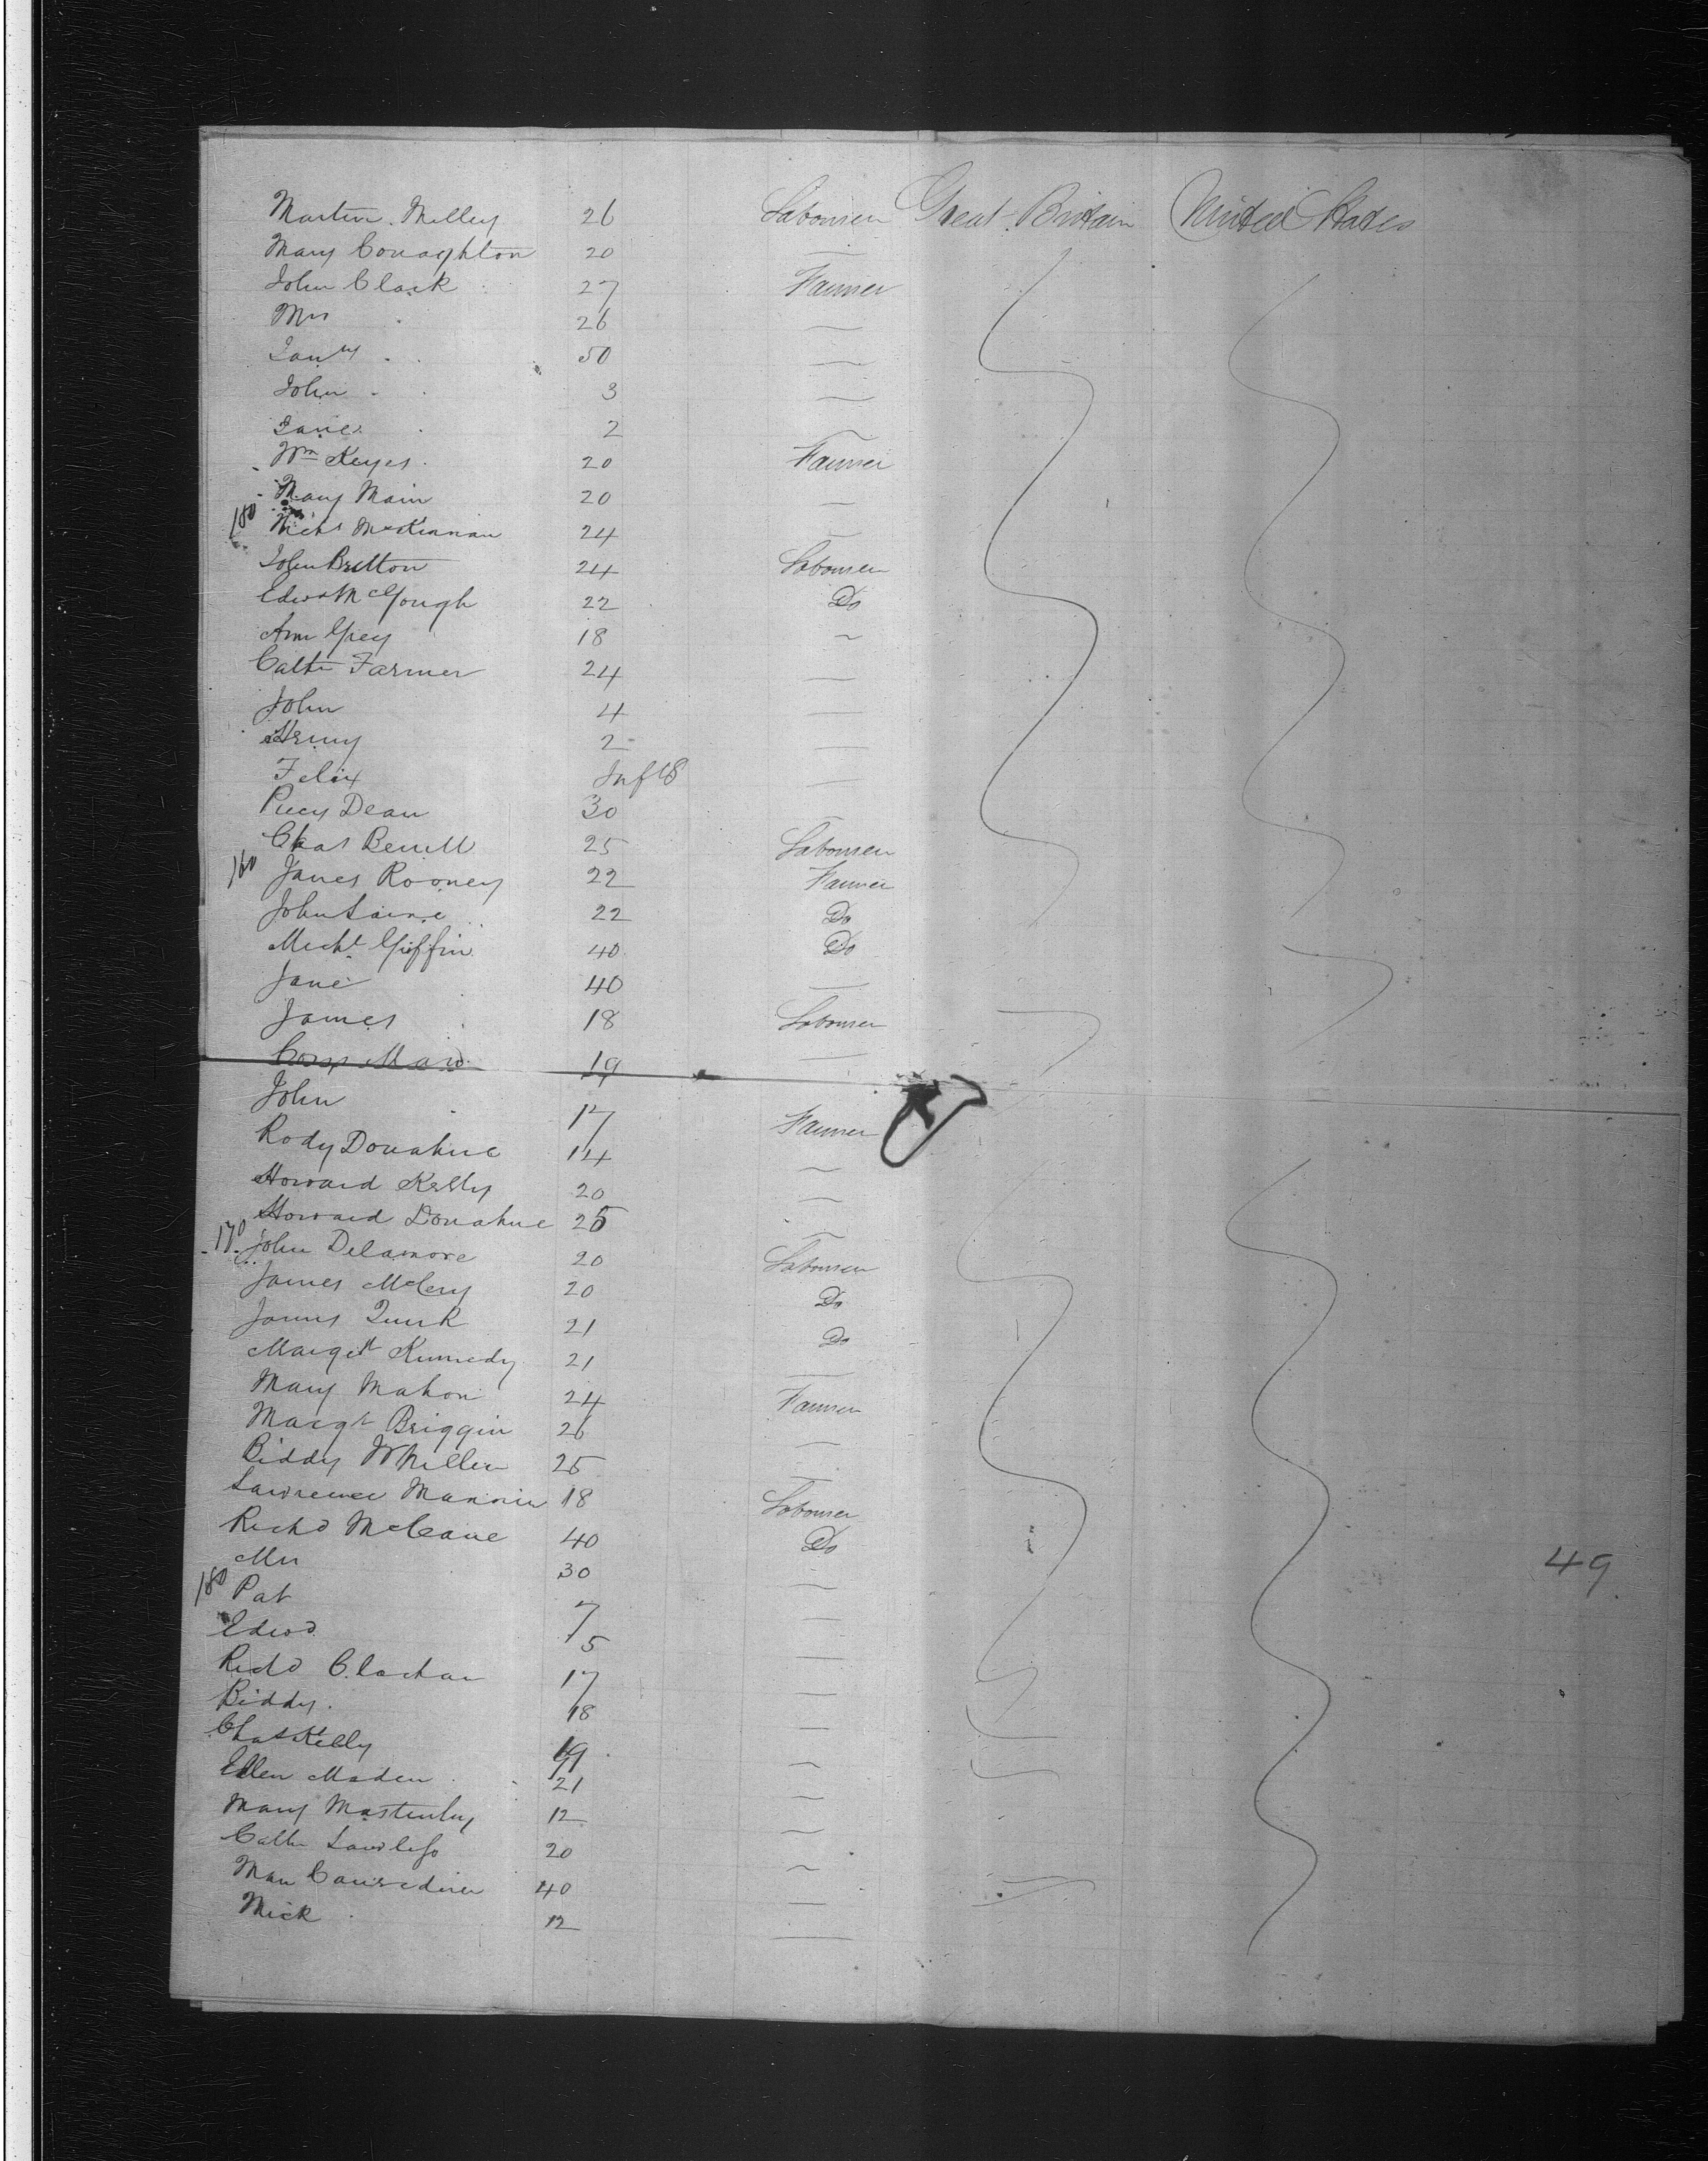 Martin Melley 26 Labourer Great Britain United States
Mary Conaghton 20 —
John Clark 27 Farmer
Mrs 26 —
50 —
John 3 —
Jane 2 —
Wm Keyes 20 Farmer
Mary Main 20 —
150 Nichs McKiernan 24 —
John Britton 24 Labourer
Edwd McGough 22 Do
Ann Grey 18 —
Cathn Farmer 24 —
John 4 —
Henry 2 —
Felix Inft 8 —
Percy Dean 30 —
Chas Berrell 25 Labourer
160 James Rooney 22 Farmer
John Laine 22 Do
Michl Griffin 40 Do
Jane 40 —
James 18 Labourer
19 —
John 17 Farmer
Rody Donahue 14 —
Howard Kelly 20 —
Howard Donahue 25 —
170 John Delamore 20 Labourer
James McCery 20 Do
James Quirk 21 Do
Margett Kennedy 21 —
Mary Mahon 24 Farmer
Margt Briggin 26 —
Biddy Whillen 25 —
Lawrence Mannin 18 Labourer
Richd McCane 40 Do
Mrs 30 —
180 Pat 7 —
Edwd 5 —
Richd Clachan 17 —
Biddy 18 —
Chas Kelly 19 —
Ellen Maden 21 —
Mary Mastenby 12 —
Cathn Lawless 20 —
Considine 40 —
Mick 12 —
49